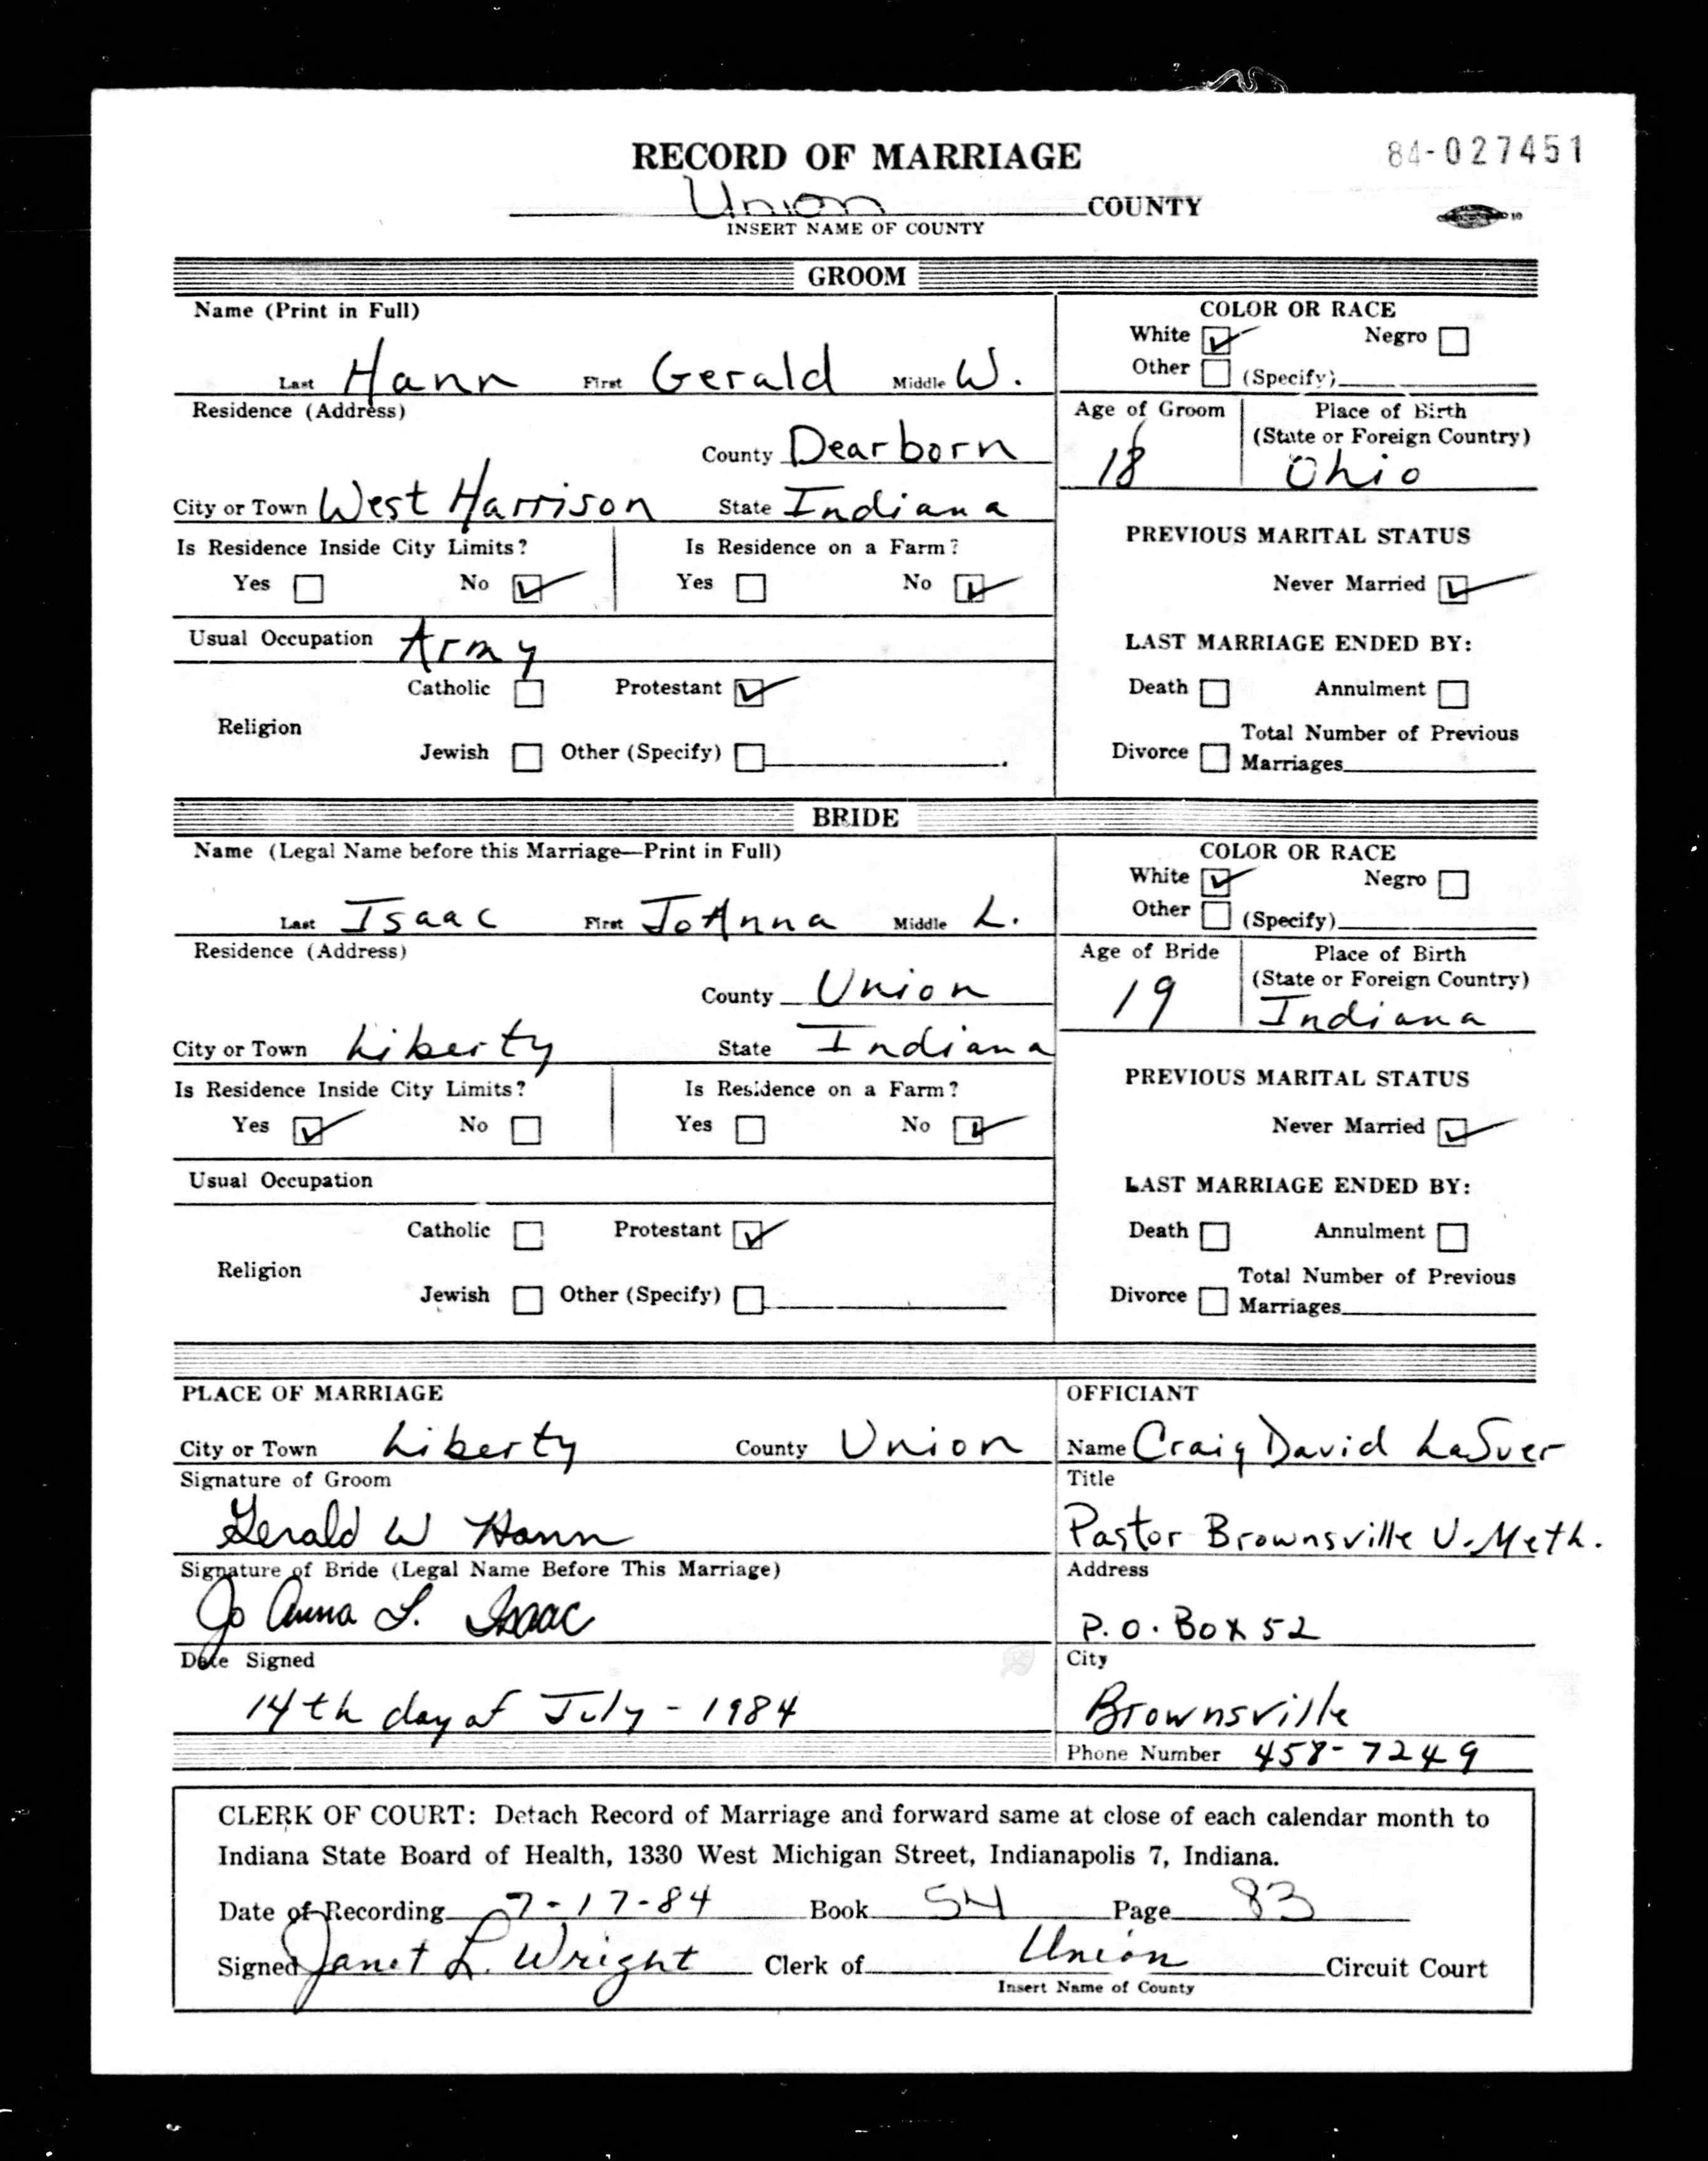 RECORD OF MARRIAGE
84-027451
Union COUNTY
INSERT NAME OF COUNTY
10
GROOM
Name (Print in Full)
Last Hann First Gerald Middle W.
COLOR OR RACE
White ☑ Negro ☐
Other ☐ (Specify)
Residence (Address)
County Dearborn
City or Town West Harrison State Indiana
Age of Groom
18
Place of Birth
(State or Foreign Country)
Ohio
Is Residence Inside City Limits?
Yes ☐ No ☑
Is Residence on a Farm?
Yes ☐ No ☑
PREVIOUS MARITAL STATUS
Never Married ☑
Usual Occupation Army
LAST MARRIAGE ENDED BY:
Religion
Catholic ☐ Protestant ☑
Jewish ☐ Other (Specify) ☐
Death ☐ Annulment ☐
Divorce ☐ Total Number of Previous
Marriages
BRIDE
Name (Legal Name before this Marriage—Print in Full)
Last Isaac First JoAnna Middle L.
COLOR OR RACE
White ☑ Negro ☐
Other ☐ (Specify)
Residence (Address)
County Union
City or Town Liberty State Indiana
Age of Bride
19
Place of Birth
(State or Foreign Country)
Indiana
Is Residence Inside City Limits?
Yes ☑ No ☐
Is Residence on a Farm?
Yes ☐ No ☑
PREVIOUS MARITAL STATUS
Never Married ☑
Usual Occupation
LAST MARRIAGE ENDED BY:
Religion
Catholic ☐ Protestant ☑
Jewish ☐ Other (Specify) ☐
Death ☐ Annulment ☐
Divorce ☐ Total Number of Previous
Marriages
PLACE OF MARRIAGE
City or Town Liberty County Union
Signature of Groom
Gerald W Hann
Signature of Bride (Legal Name Before This Marriage)
Jo Anna L. Isaac
Date Signed
14th day of July - 1984
OFFICIANT
Name Craig David LaSuer
Title
Pastor Brownsville U. Meth.
Address
P.O. Box 52
City
Brownsville
Phone Number 458-7249
CLERK OF COURT: Detach Record of Marriage and forward same at close of each calendar month to
Indiana State Board of Health, 1330 West Michigan Street, Indianapolis 7, Indiana.
Date of Recording 7-17-84 Book 54 Page 83
Signed Janet L. Wright Clerk of Union Circuit Court
Insert Name of County